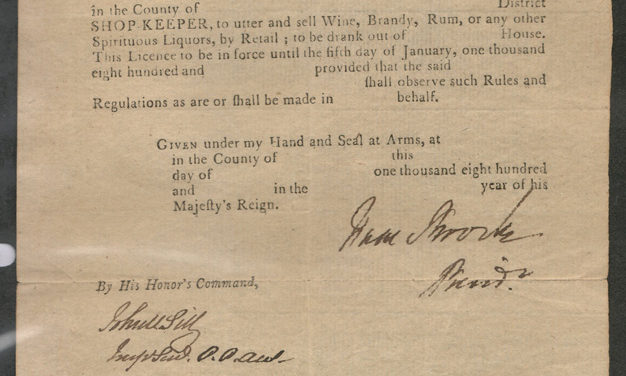 in the County of District
SHOP-KEEPER, to utter and sell Wine, Brandy, Rum, or any other
Spirituous Liquors, by Retail ; to be drank out of House.
This Licence to be in force until the fifth day of January, one thousand
eight hundred and provided that the said
ſhall obſerve ſuch Rules and
Regulations as are or ſhall be made in behalf.
GIVEN under my Hand and Seal at Arms, at
in the County of this
day of one thousand eight hundred
and in the year of his
Majeſty's Reign.
Isaac Brock
Presid.t
By His Honor's Command,